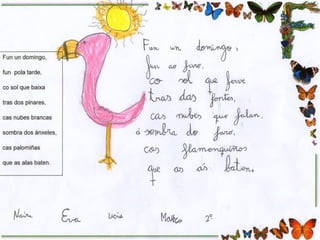 Fun un domingo,
fun pola tarde,
co sol que baixa
tras dos pinares,
cas nubes brancas
sombra dos ánxeles,
cas palomiñas
que as alas baten.
Fun un domingo,
fun ao faro,
co sol que ferve
tras das fontes,
cas nubes que falan,
á sombra do faro,
cos flamenquiños
que as ás baten.
Naira Eva Uxia Marco 2º